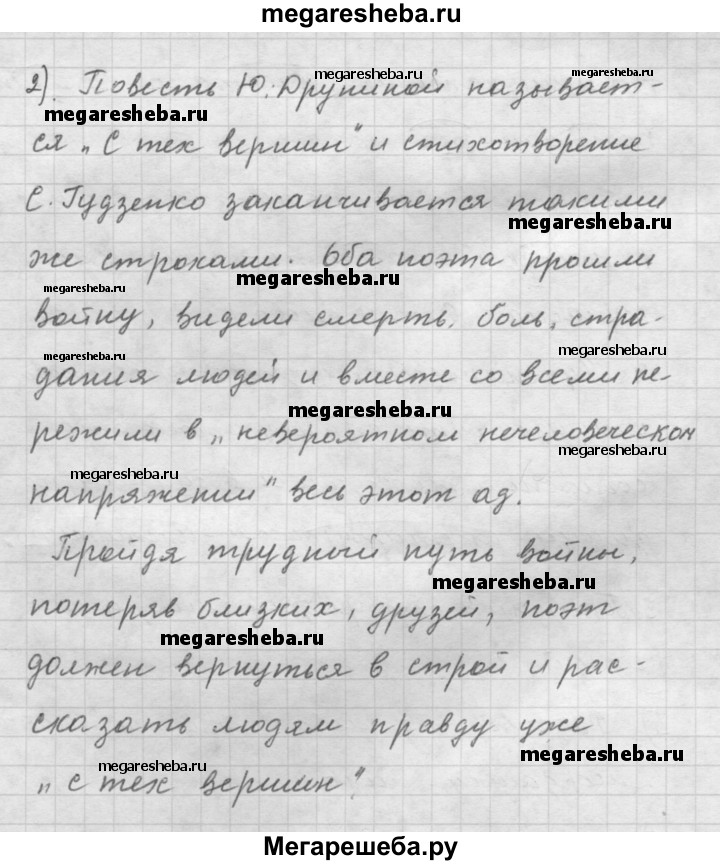 megaresheba.ru
2). Повесть Ю. Друниной называет-
megaresheba.ru
megaresheba.ru
megaresheba.ru
ся „С тех вершин" и стихотворение
С. Гудзенко заканчивается такими
megaresheba.ru
же строками. Оба поэта прошли
megaresheba.ru
megaresheba.ru
войну, видели смерть, боль, стра-
megaresheba.ru
megaresheba.ru
дания людей и вместе со всеми пе-
megaresheba.ru
режили в „невероятном нечеловеческом
megaresheba.ru
megaresheba.ru
напряжении" весь этот ад.
Пройдя трудный путь войны,
megaresheba.ru
потеряв близких, друзей, поэт
megaresheba.ru
должен вернуться в строй и рас-
сказать людям правду уже
megaresheba.ru
megaresheba.ru
„с тех вершин".
Мегарешеба.ру